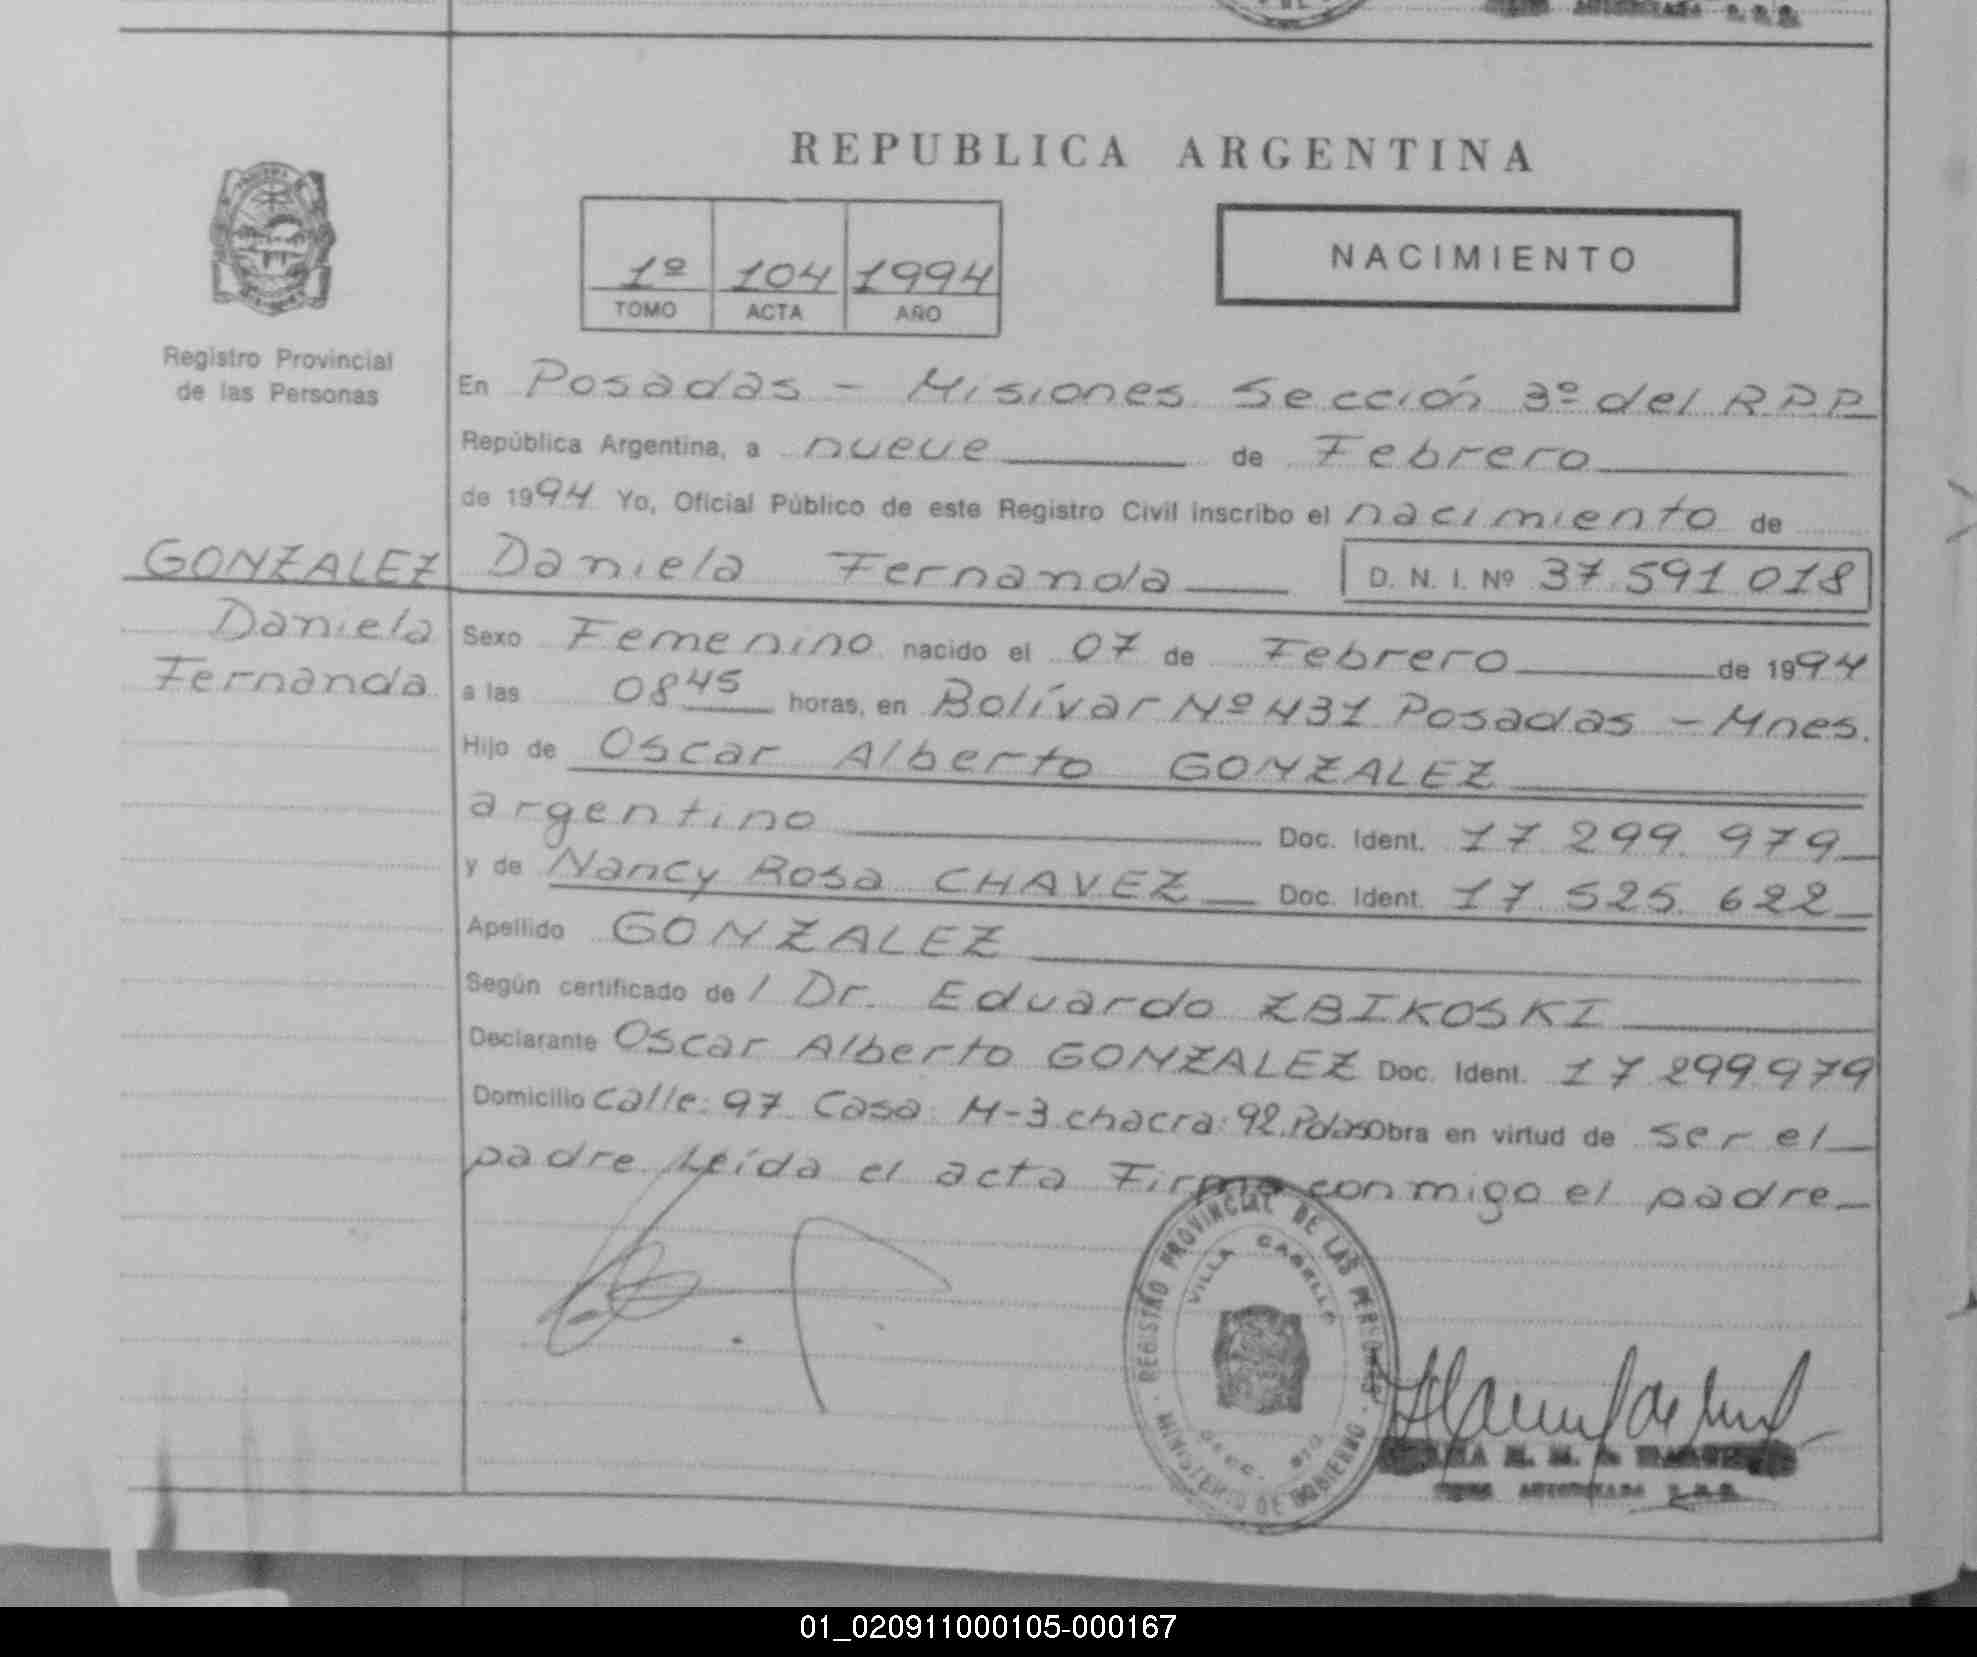 REPUBLICA ARGENTINA
1º 104 1994
TOMO ACTA AÑO
NACIMIENTO
Registro Provincial
de las Personas
En Posadas - Misiones Sección 3º del R.P.P.
República Argentina, a nueve de Febrero
de 1994 Yo, Oficial Público de este Registro Civil inscribo el nacimiento de
GONZALEZ
Daniela
Fernanda
Daniela Fernanda D. N. I. Nº 37.591.018
Sexo Femenino nacido el 07 de Febrero de 1994
a las 08 45 horas, en Bolívar Nº 431 Posadas - Mnes.
Hijo de Oscar Alberto GONZALEZ
argentino Doc. Ident. 17.299.979
y de Nancy Rosa CHAVEZ Doc. Ident. 17.525.622
Apellido GONZALEZ
Según certificado de / Dr. Eduardo ZBIKOSKI
Declarante Oscar Alberto GONZALEZ Doc. Ident. 17.299.979
Domicilio calle: 97 Casa: M-3 chacra: 92. Pdas Obra en virtud de ser el
padre Leída el acta Firma conmigo el padre
REGISTRO PROVINCIAL DE LAS PERSONAS
VILLA CABELLO
MINISTERIO DE GOBIERNO
01_020911000105-000167